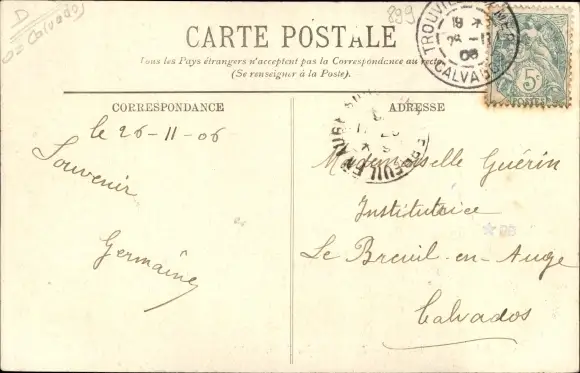 D
Calvados
899
CARTE POSTALE
Tous les Pays étrangers n'acceptent pas la Correspondance au recto
(Se renseigner à la Poste).
TROUVILLE
19
26 -11
06
CALVADOS
5c
CORRESPONDANCE
ADRESSE
le 26-11-06
Souvenir
Germaine
Mademoiselle Guérin
Institutrice
Le Breuil-en-Auge
Calvados